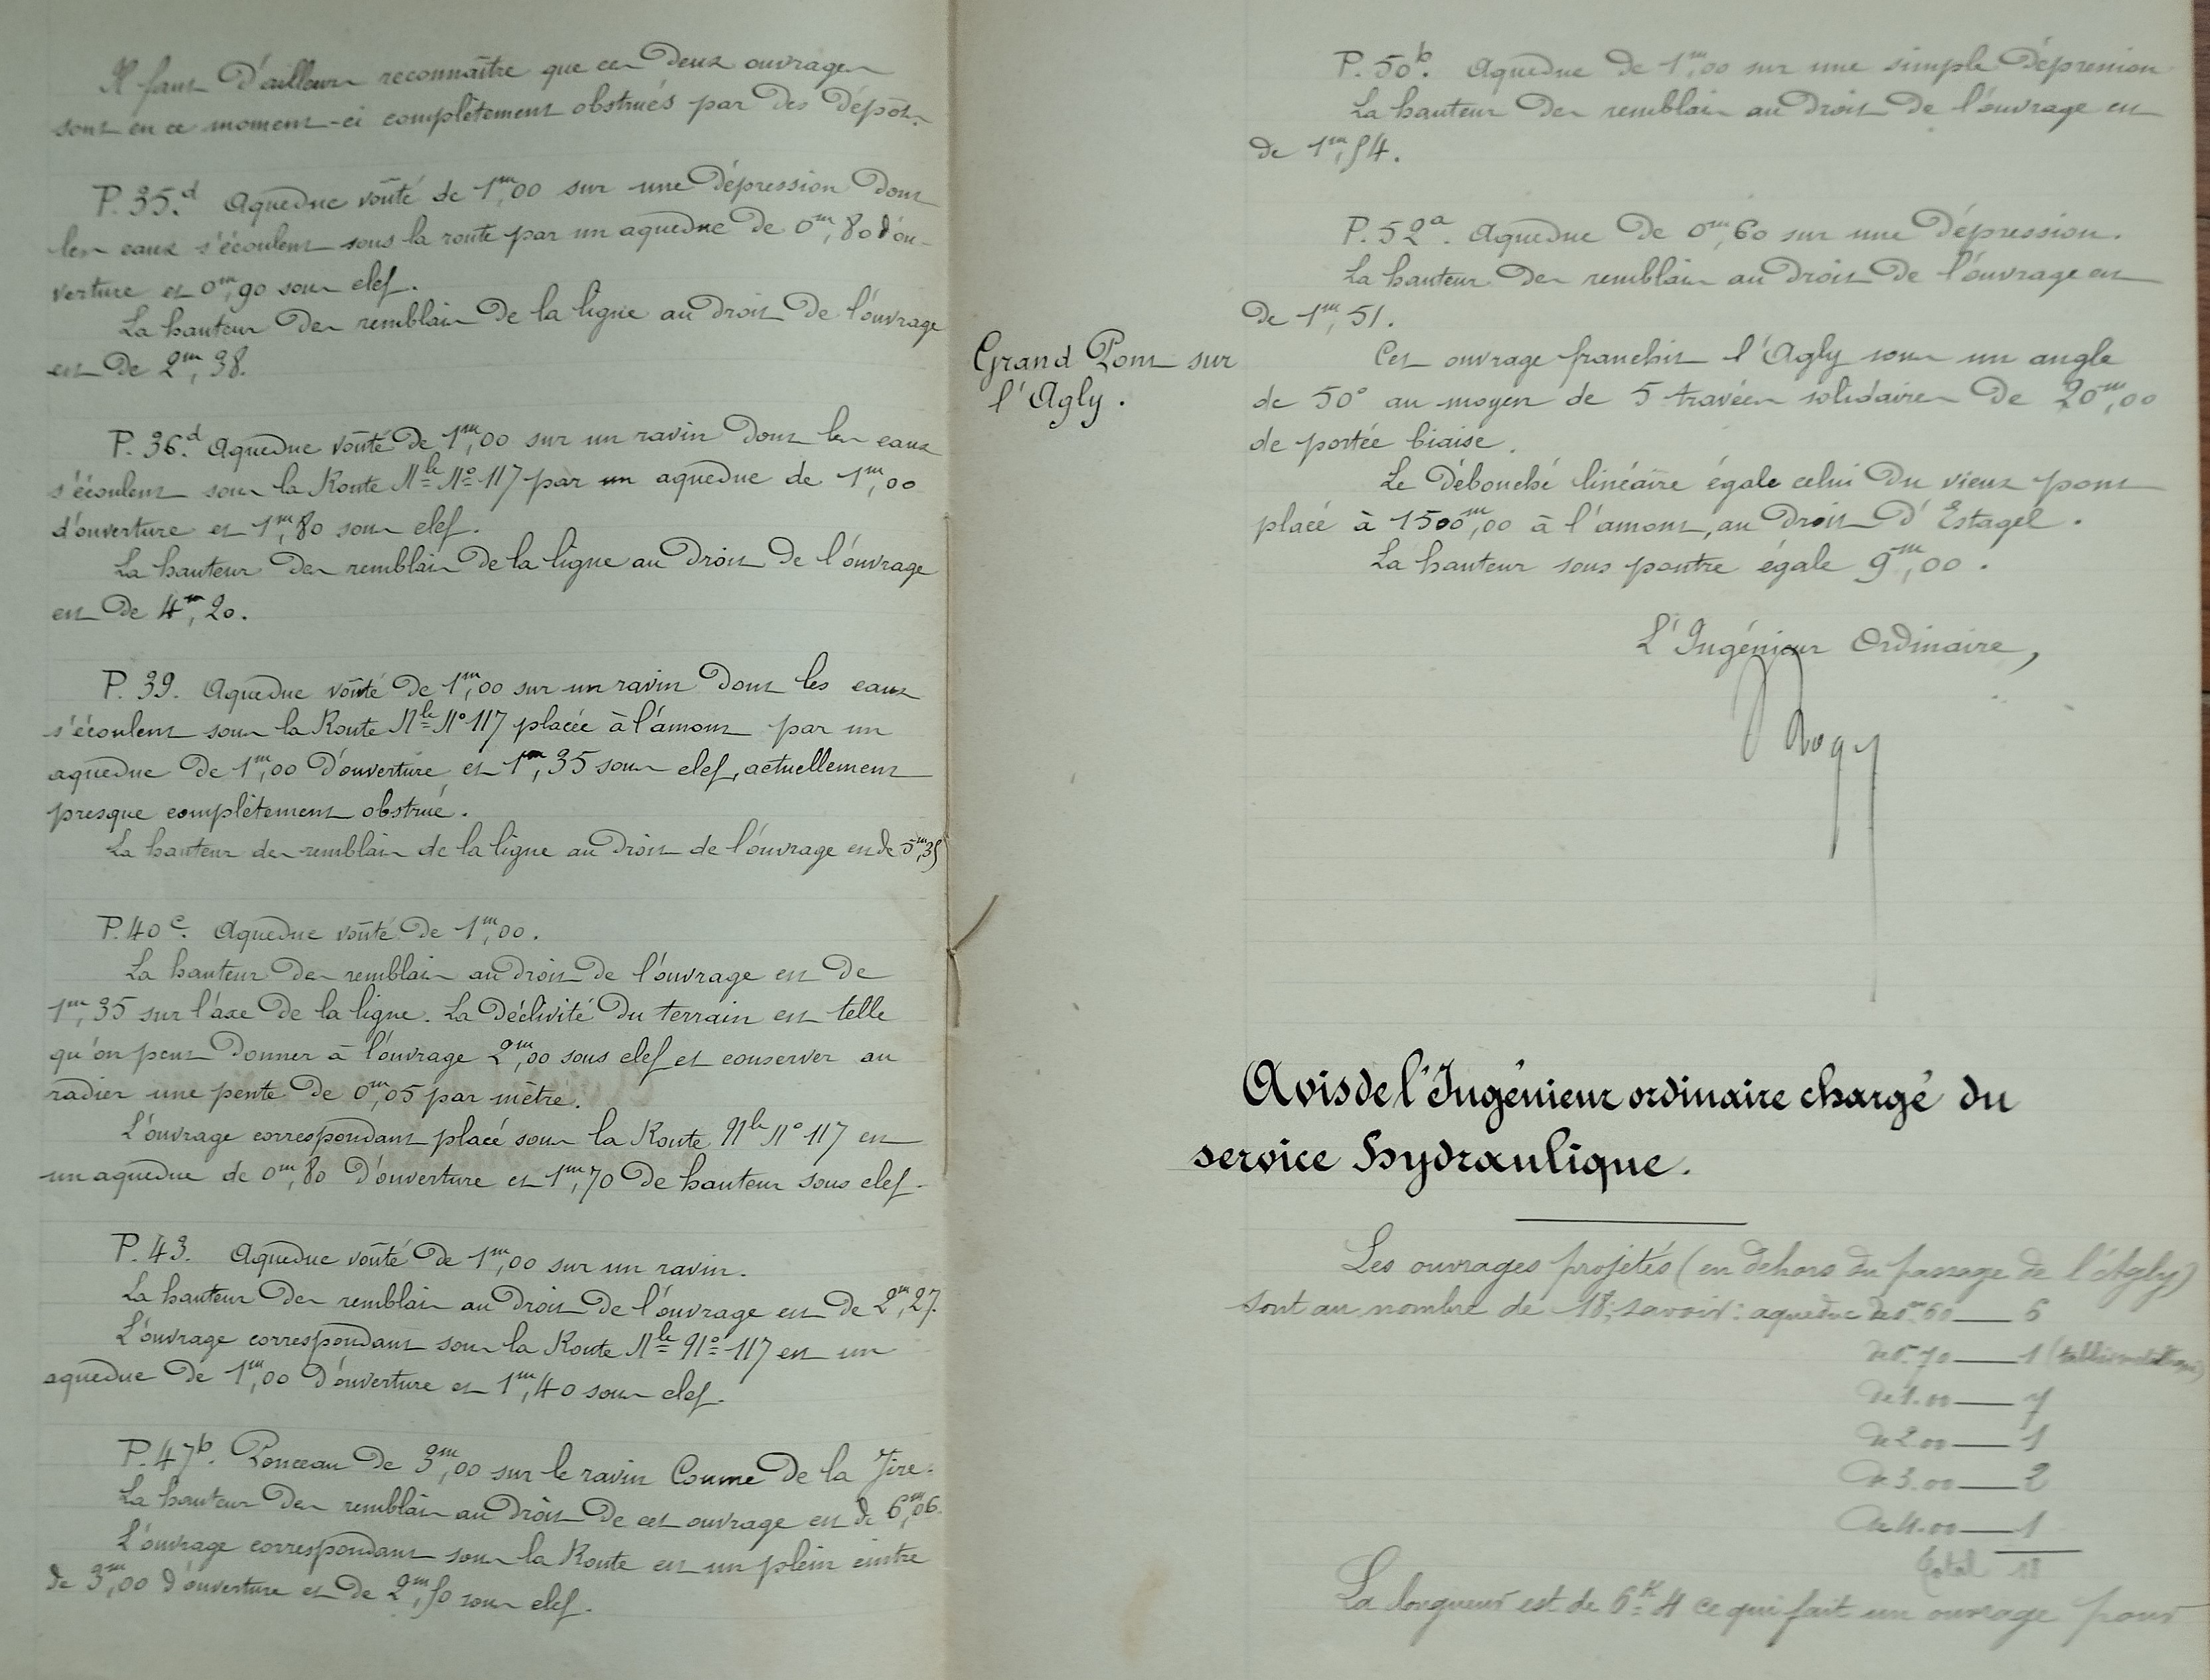 Il faut d'ailleurs reconnaître que ces deux ouvrages
sont en ce moment-ci complètement obstrués par des dépôts.
P. 35.d Aqueduc voûté de 1m,00 sur une dépression dont
les eaux s'écoulent sous la route par un aqueduc de 0m,80 d'ou-
verture et 0m,90 sous clef.
La hauteur des remblais de la ligne au droit de l'ouvrage
est de 2m,38.
P. 36.d Aqueduc voûté de 1m,00 sur un ravin dont les eaux
s'écoulent sous la Route Nle No 117 par un aqueduc de 1m,00
d'ouverture et 1m,80 sous clef.
La hauteur des remblais de la ligne au droit de l'ouvrage
est de 4m,20.
P. 39. Aqueduc voûté de 1m,00 sur un ravin dont les eaux
s'écoulent sous la Route Nle No 117 placée à l'amont par un
aqueduc de 1m,00 d'ouverture et 1m,35 sous clef, actuellement
presque complètement obstrué.
La hauteur des remblais de la ligne au droit de l'ouvrage est de 5m,35
P. 40 c. Aqueduc voûté de 1m,00.
La hauteur des remblais au droit de l'ouvrage est de
1m,35 sur l'axe de la ligne. La déclivité du terrain est telle
qu'on peut donner à l'ouvrage 2m,00 sous clef et conserver au
radier une pente de 0m,05 par mètre.
L'ouvrage correspondant placé sous la Route Nle No 117 est
un aqueduc de 0m,80 d'ouverture et 1m,70 de hauteur sous clef.
P. 43. Aqueduc voûté de 1m,00 sur un ravin.
La hauteur des remblais au droit de l'ouvrage est de 2m,27.
L'ouvrage correspondant sous la Route Nle No 117 est un
aqueduc de 1m,00 d'ouverture et 1m,40 sous clef.
P. 47b. Ponceau de 3m,00 sur le ravin Coume de la Tire.
La hauteur des remblais au droit de cet ouvrage est de 6m,06.
L'ouvrage correspondant sous la Route est un plein cintre
de 3m,00 d'ouverture et de 2m,50 sous clef.
P. 50b. Aqueduc de 1m,00 sur une simple dépression
La hauteur des remblais au droit de l'ouvrage est
de 1m,54.
P. 52a. Aqueduc de 0m,60 sur une dépression.
La hauteur des remblais au droit de l'ouvrage est
de 1m,51.
Grand Pont sur
l'Agly.
Cet ouvrage franchit l'Agly sous un angle
de 50° au moyen de 5 travées solidaires de 20m,00
de portée biaise.
Le débouché linéaire égale celui du vieux pont
placé à 1500m,00 à l'amont, au droit d'Estagel.
La hauteur sous poutre égale 9m,00.
L'Ingénieur Ordinaire,
Avis de l'Ingénieur ordinaire chargé du
service hydraulique.
Les ouvrages projetés (en dehors du passage de l'Agly)
sont au nombre de 18, savoir: aqueduc de 0m.60 — 6
de 0m.70 — 1
de 1.00 — 7
de 2.00 — 1
de 3.00 — 2
de 4.00 — 1
Total 18
La longueur est de 6k.4 ce qui fait un ouvrage pour